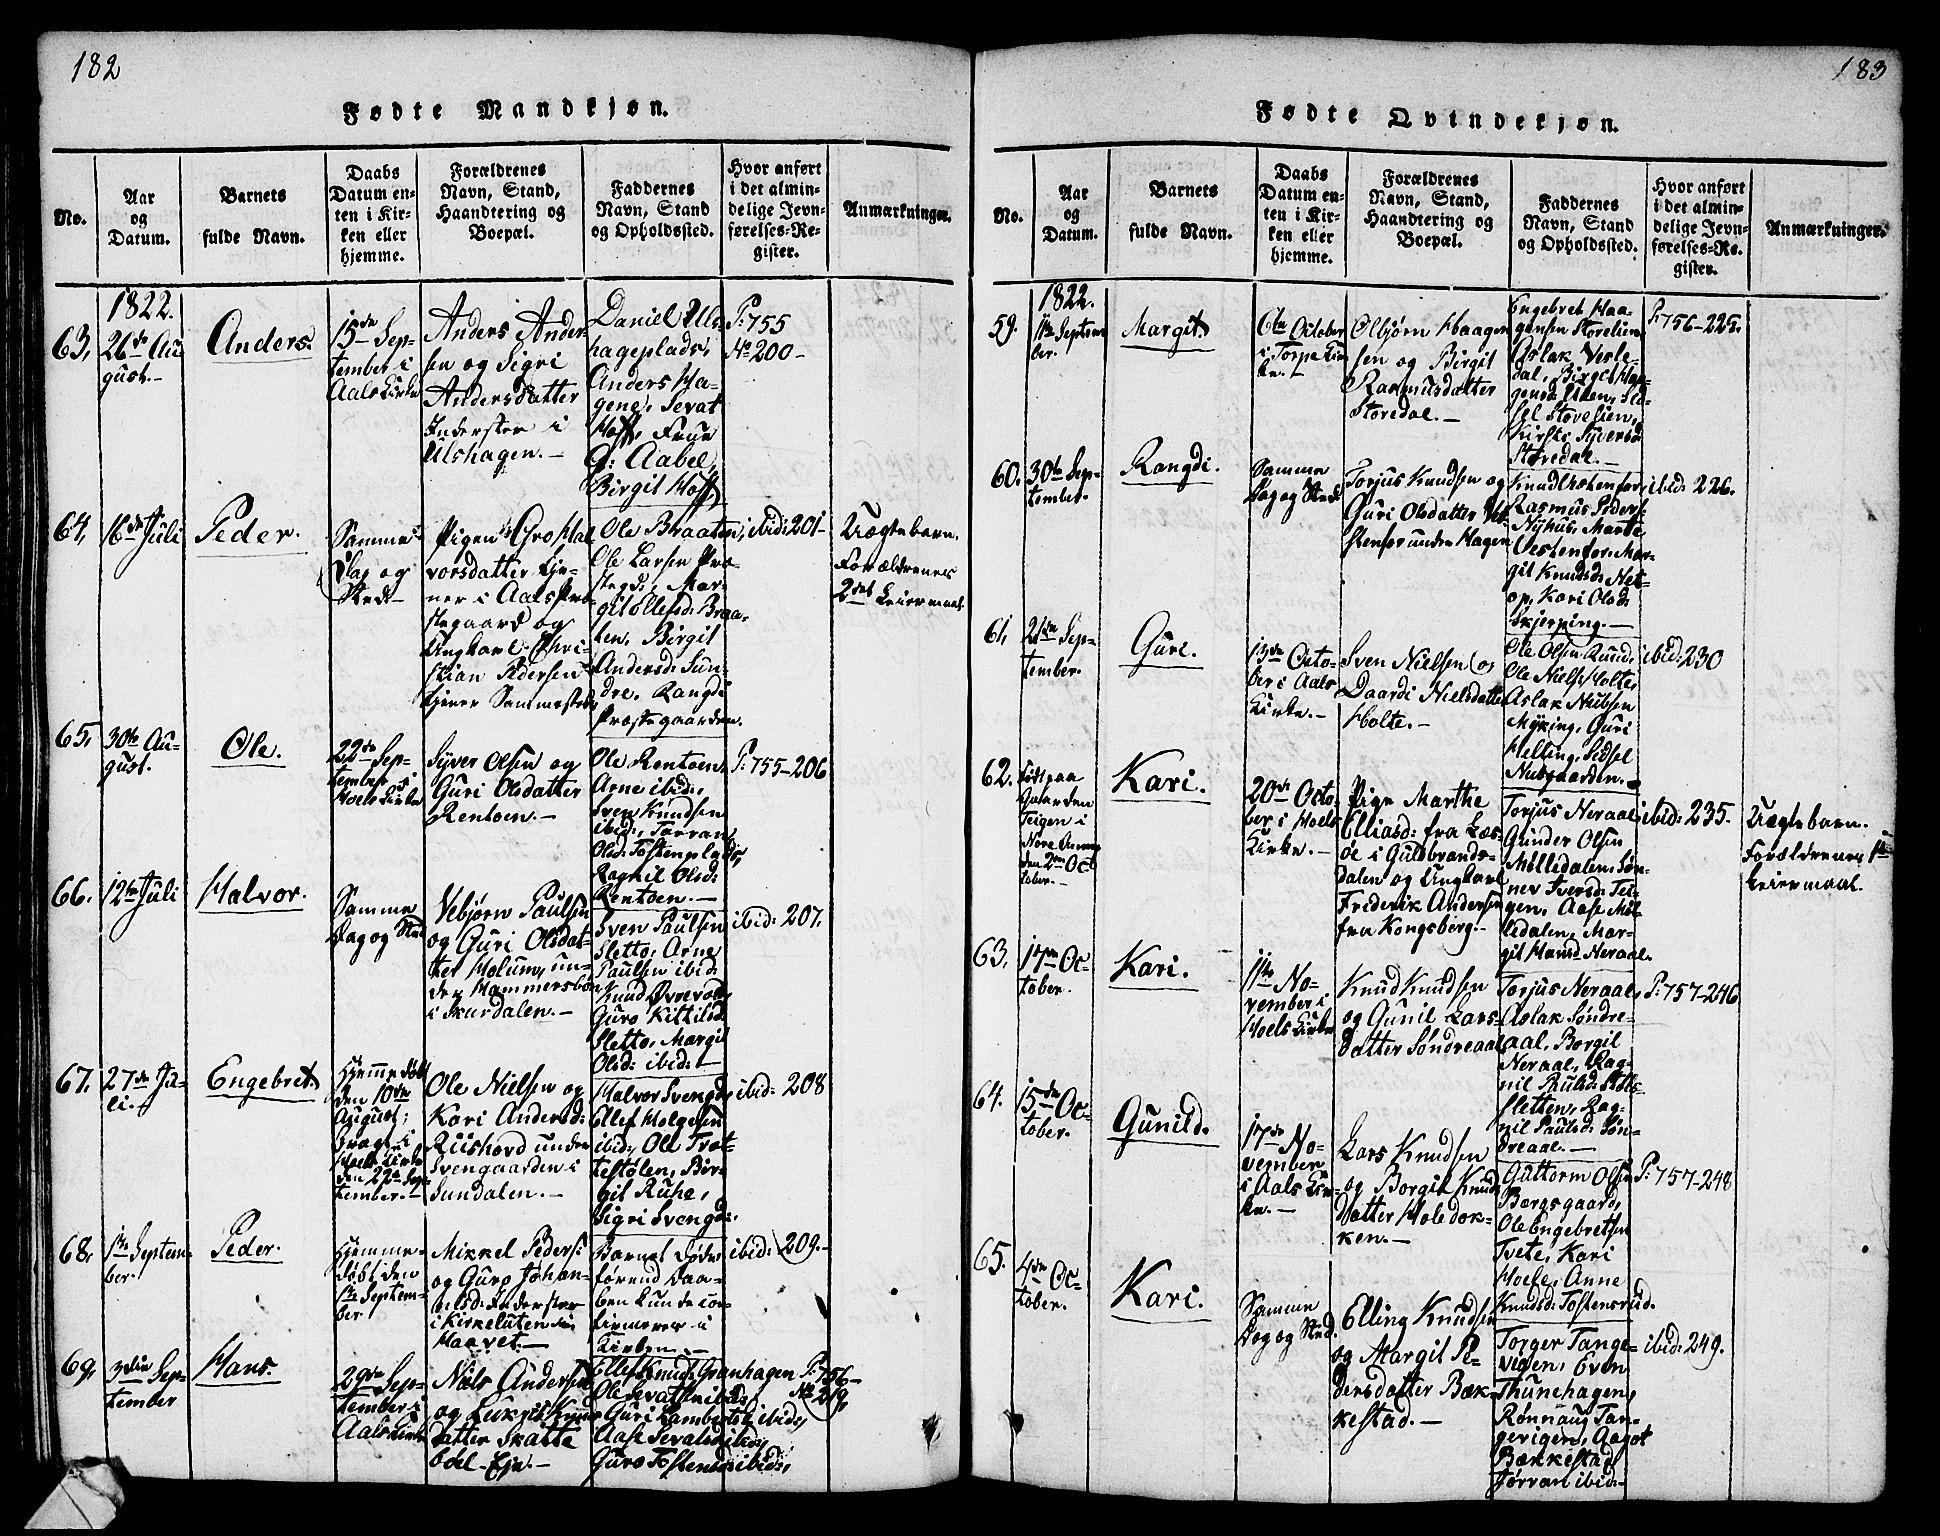 182
Fødte Mandkjøn.
No.
Aar
og
Datum.
Barnets
fulde Navn.
Daabs
Datum en-
ten i Kir-
ken eller
hjemme.
Forældrenes
Navn, Stand,
Haandtering og
Boepæl.
Faddernes
Navn, Stand
og Opholdssted.
Hvor anført
i det almin-
delige Jevn-
førelses-Re-
gister.
Anmærkninger.
1822.
63,
26de Au-
gust.-
Anders.
15de Sep-
tember i
Aals Kirke
Anders Ander-
sen og Sigri
Andersdatter
Inderster i
Ulshagen.-
Daniel Uls-
hageplads,
Anders Ha-
gene, Sevat
Hoff, Frue
G: Aabel,
Birgit Hoff,
P: 755
No 200-
64,
16de Juli
Peder.
Samme
Dag og
Sted-
Pigen Gro Hal-
vorsdatter tje-
ner i Aals Præ-
stegaard og
Ungkarl Chri-
stian Pedersen
tjener Sammested,
Ole Braaten,
Ole Larsen Præ-
stegd: Mar-
git Ollsd: Braa-
ten, Birgit
Andersd: Sun-
dre, Rangdi
Præstegaarden.
ibid: 201-
Uægte barn.
Forældrenes
2det Leiermaal
65,
30te Au-
gust.
Ole.
22de Sep-
tember i
Hoels Kirke
Syver Olsen og
Guri Olsdatter
Rentoen.-
Ole Rentoen,
Arne ibid:,
Sven Knudsen
ibid:, Torran
Olsd: Tostenplads,
Ragnil Olsd:
Rentoen.-
P: 755-206
66.
12te Juli
Halvor.
Samme
Dag og Sted
Vebjørn Paulsen
og Guri Olsdat-
ter Holum, un-
der Hammersbøe
i Skurdalen.-
Sven Paulsen
Sletto, Arne
Paulsen ibid:
Knud Øvrevold,
Guro Kittilsd:
Sletto, Margit
Olsd: ibid:-
ibid: 207.
67,
27de Ju-
li.
Engebret.
Hjemme døbt
den 10de
August;
bragt i
Hoels Kirke
den 22de Sep-
tember.-
Ole Nielsen og
Kari Andersd:
Riishovd under
Svengaarden i
Sundalen.-
Halvor Svengd:,
Ellef Holgesen
ibid:, Ole Træt-
testølen, Bir-
git Ruhe,
Sigri Svengd:.
ibid: 208
68,
1te Septem-
ber.
Peder.
Hjemme-
døbt den
1te Septem-
ber
Mikkel Peders:
og Gurp Johan-
nesd: Inderster
i Kirkeluten
Haavet.-
Barnet døde
førend Daa-
ben kunde con-
firmeres i
Kirken.-
ibid: 209.-
69,
3die Sep-
tember
Hans.
29de Sep-
tember i
Aals Kirke
Niels Andersen
og Lukris Knud-
datter Skatte
bøl-Eje-
Ellef Knuds: Grønhagen
Ole Sevats: ibid:,
Guri Lambertsd: ibid:,
Aase Sevatsd: ibid:,
Guro Tostensd: ibid:,
P: 756-
No 219,
183
Fødte Qvindekjøn.
No.
Aar
og
Datum.
Barnets
fulde Navn.
Daabs
Datum en-
ten i Kir-
ken eller
hjemme.
Forældrenes
Navn, Stand,
Haandtering og
Boepæl.
Faddernes
Navn, Stand
og Opholdssted.
Hvor anført
i det almin-
delige Jevn-
førelses-Re-
gister.
Anmærkninger.
1822.
59.
11te Septem-
ber.
Margit.
6te October
i Torpe Kir-
ke.-
Olbjørn Haagen-
sen og Birgit
Rasmusdatter
Storedal.-
Engebret Haa-
gensen Storelien,
Aslak Vesle-
dal, Birgit
Lien, Sid-
sel Storelien,
Kirsti Syversd:
Storedal.-
P: 756-225.
60.
30te Sep-
tember.
Rangdi.
Samme
Dag og Sted
Torjus Knudsen og
Guri Olsdatter Ve-
stenfor under Hagen
Knud Vestenfor,
Rasmus Peders:
Nyhus, Marte
Vestenfor, Mar-
git Knudsd: Net-
op, Kari Olsd:
Skjerping.-
ibid: 226.
61,
21de Sep-
tember.
Guri.
13de Octo-
ber i Aals
Kirke.-
Sven Nielsen og
Daardi Nielsdatter
Holte.-
Ole Olsen Ruud,
Ole Niels: Holte,
Aslak Nielsen
Myking, Guri
Helling, Sidsel
Nubgaarden.-
ibid: 230
62.
Født paa
Gaarden
Teigen i
Nore Annex
den 2den Oc-
tober.-
Kari.
20de Octo-
ber i Hoels
Kirke.-
Pige Marthe
Elliasd: fra Læs-
øe i Guldbrands-
dalen og Ungkarl
Friderik Andersen
fra Kongsberg.-
Torjus Neraal,
Gunder Olsen
Mølledalen, Søn-
nev Sversd: Tei-
gen, Aase Møl-
ledalen, Mar-
git Neraal.
ibid: 235.
Uægte barn.
Forældrenes 1te
Leiermaal.
63,
17de Oc-
tober.
Kari.
11te No-
vember i
Hoels Kirke
Knud Knudsen
og Gunil Lars-
datter Søndreaal
Torjus Neraal,
Aslak Søndre-
aal, Borgil
Neraal, Rag-
nil Paulsd:
sletten, Rag-
nil Paulsd: Søn-
dreaal.-
P: 757-246
64.
15de Oc-
tober.
Gunild.
17de No-
vember
i Aals Kir-
ke.-
Lars Knudsen
og Borgil Knud
datter Holedok-
ken.-
Guttorm Olsen
Borgsgaard,
Ole Engebretsen
Tvete, Kari
Hoele, Anne
Knudsd: Tostensrud.
P: 757-248
65.
4de Oc-
tober.
Kari.
Samme
Dag og Sted.
Elling Knudsen
og Margit Pe-
dersdatter Bæk-
kestad.-
Torger Tange-
vigen, Even
Thunehagen,
Rønnaug Tan-
gevigen, Aagot
Bækkestad
Jørran ibid:-
ibid: 249.